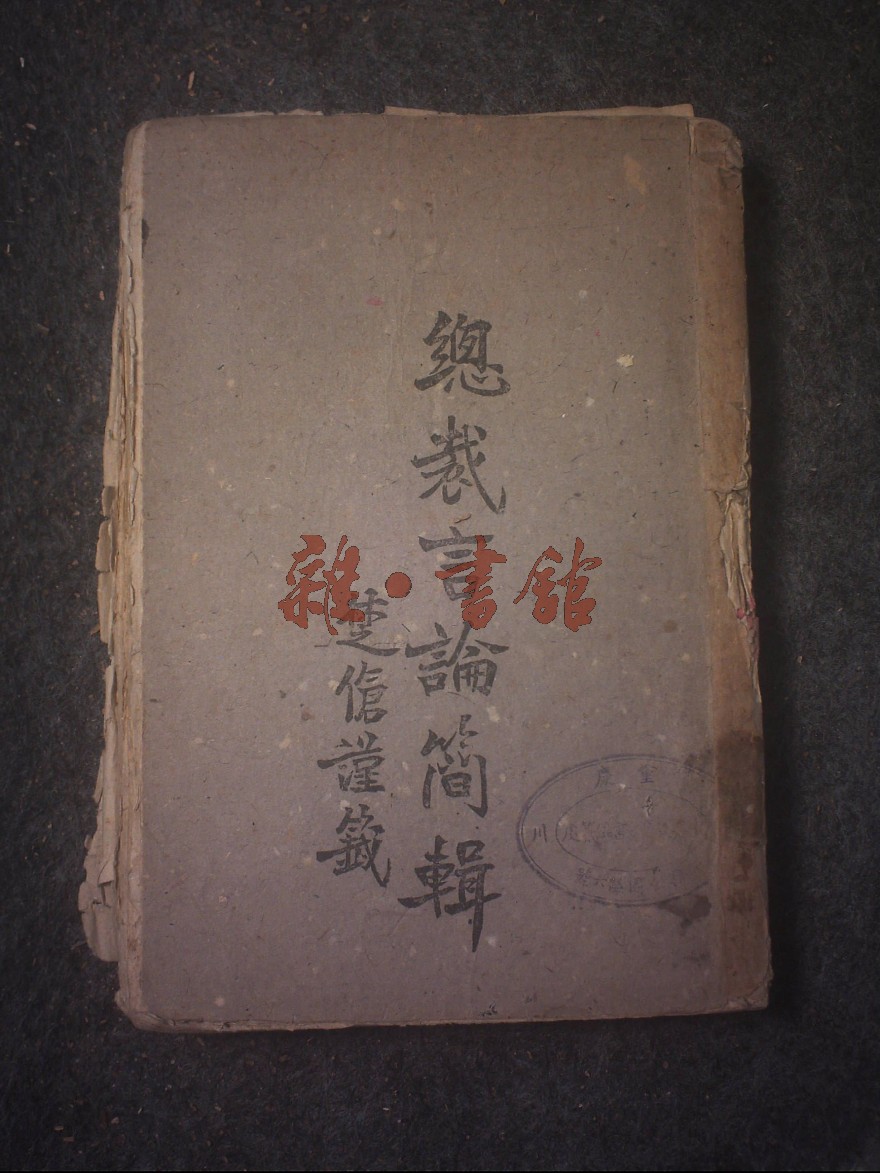 總裁言論簡輯
楚傖謹籤
雜·書館